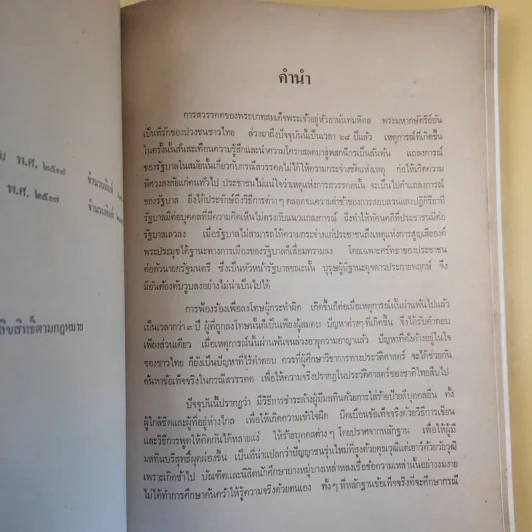 พ.ศ. ๒๕๑๗
พ.ศ. ๒๕๑๗
ลิขสิทธิ์ตามกฎหมาย
คำนำ
การสวรรคตของพระบาทสมเด็จพระเจ้าอยู่หัวอานันทมหิดล พระมหากษัตริย์อัน
เป็นที่รักของปวงชนชาวไทย ล่วงมาถึงปัจจุบันนี้เป็นเวลา ๒๘ ปีแล้ว เหตุการณ์ที่เกิดขึ้น
ในครั้งนั้นสั่นสะเทือนความรู้สึกและนำความโศกสลดมาสู่พสกนิกรเป็นล้นพ้น แถลงการณ์
ของรัฐบาลในสมัยนั้นเกี่ยวกับกรณีสวรรคตไม่ได้ให้ความกระจ่างชัดแห่งเหตุ ก่อให้เกิดความ
พิศวงสงสัยแก่คนทั่วไป ประชาชนไม่แน่ใจว่าเหตุแห่งการสวรรคตนั้น จะเป็นไปตามแถลงการณ์
ของรัฐบาล ยิ่งได้ประจักษ์ถึงวิธีการต่าง ๆ ตลอดจนความล่าช้าของการสอบสวนและปฏิกิริยาที่
รัฐบาลมีต่อบุคคลที่มีความคิดเห็นไม่ตรงกับแนวแถลงการณ์ ยิ่งทำให้ทัศนคติที่ประชาชนมีต่อ
รัฐบาลเลวลง เมื่อรัฐบาลไม่สามารถให้ความกระจ่างแก่ประชาชนถึงเหตุแห่งการสูญเสียองค์
พระประมุขได้ฐานะทางการเมืองของรัฐบาลก็เสื่อมทรามลง โดยเฉพาะศรัทธาของประชาชน
ต่อตัวนายกรัฐมนตรี ซึ่งเป็นหัวหน้ารัฐบาลขณะนั้น บุรุษผู้มีฐานะดุจดาวประกายพฤกษ์ จึง
มีอันต้องดับวูบลงอย่างไม่น่าเป็นไปได้
การฟ้องร้องเพื่อลงโทษผู้กระทำผิด เกิดขึ้นก็ต่อเมื่อเหตุการณ์ในผ่านพ้นไปแล้ว
เป็นเวลากว่า ๓ ปี ผู้ที่ถูกลงโทษนั้นก็เป็นเพียงผู้สมคบ ปัญหาต่างๆ ที่เกิดขึ้น จึงได้รับคำตอบ
เพียงส่วนเดียว เมื่อเหตุการณ์นี้ผ่านพ้นจนล่วงอายุความอาญาแล้ว ปัญหาที่คั่งค้างอยู่ในใจ
ของชาวไทย ก็ยังเป็นปัญหาที่ไร้คำตอบ ควรที่ผู้ศึกษาวิชาการทางประวัติศาสตร์ จะได้ช่วยกัน
ค้นหาข้อเท็จจริงในกรณีสวรรคต เพื่อให้ความจริงปรากฏในประวัติศาสตร์ของชาติไทยสืบไป
ปัจจุบันนี้ปรากฏว่า มีวิธีการชำระล้างผู้มีมลทินด้วยการใส่ร้ายป้ายสีบุคคลอื่น ทั้ง
ผู้ใกล้ชิดและผู้ที่อยู่ห่างไกล เพื่อให้เกิดความเข้าใจผิด บิดเบือนข้อเท็จจริงด้วยวิธีการเขียน
และวิธีการพูดให้คิดกันได้หลายแง่ ให้ร้ายบุคคลต่าง ๆ โดยปราศจากหลักฐาน เพื่อให้ผู้มี
มลทินบริสุทธิ์ผุดผ่องขึ้น เป็นที่น่าแปลกว่าปัญญาชนรุ่นใหม่ที่สูงด้วยคุณวุฒิแต่เยาว์ด้วยวัยวุฒิ
เพราะเกิดช้าไป บัณฑิตและนิสิตนักศึกษาบางหมู่บางเหล่าหลงเชื่อข้อความเหล่านั้นอย่างงมงาย
ไม่ได้ทำการศึกษาค้นคว้าให้รู้ความจริงด้วยตนเอง ทั้งๆ ที่หลักฐานข้อเท็จจริงที่จะศึกษากรณี